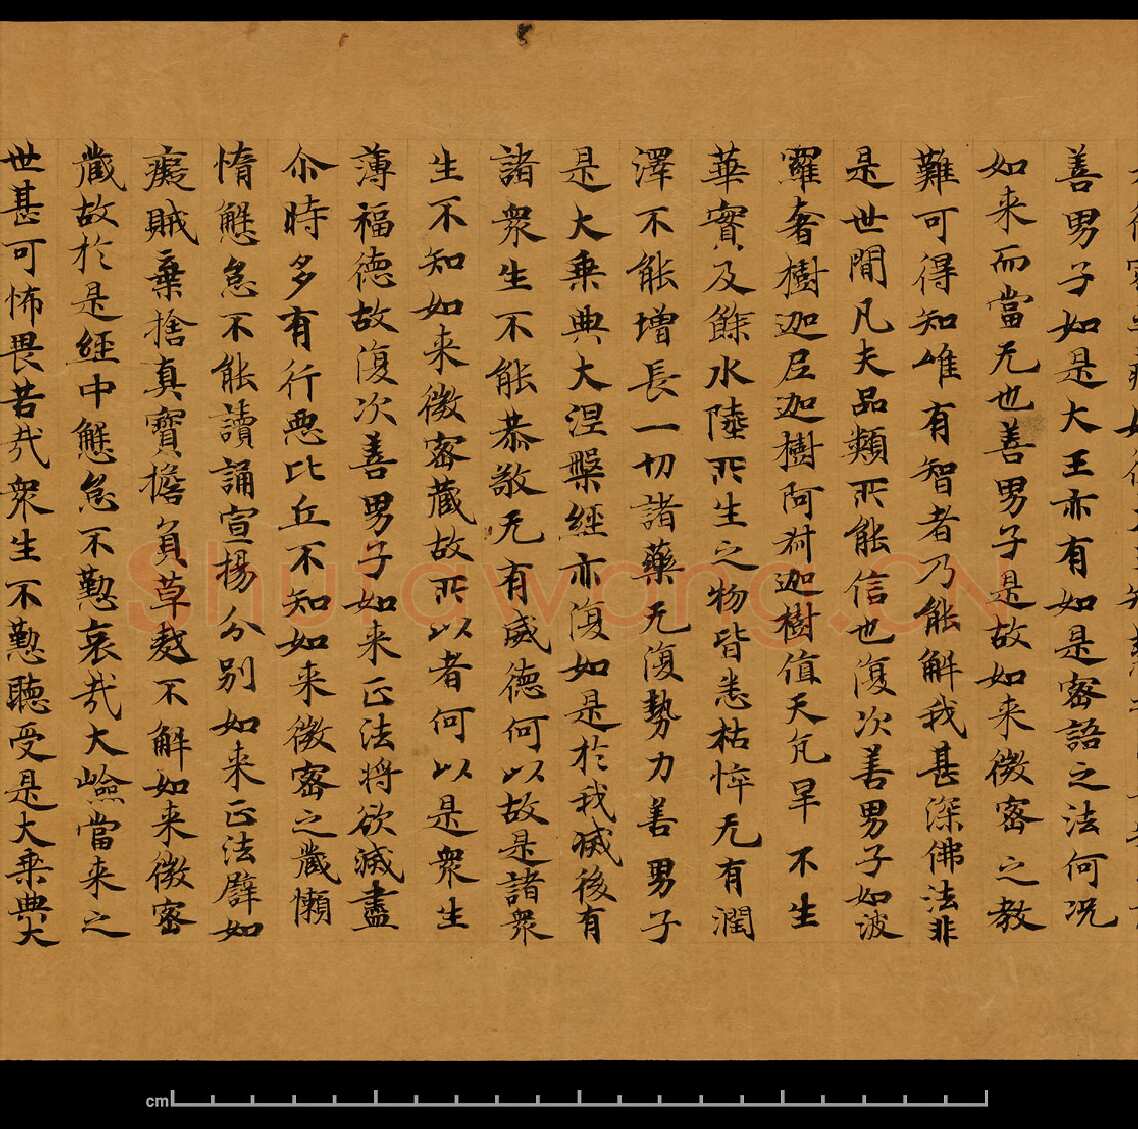 善男子如是大王亦有如是密語之法何况
如来而當无也善男子是故如来微密之教
難可得知唯有智者乃能解我甚深佛法非
是世間凡夫品類所能信也復次善男子如波
羅奢樹迦尼迦樹阿叔迦樹值天亢旱不生
華實及餘水陸所生之物皆悉枯悴无有潤
澤不能增長一切諸藥无復勢力善男子
是大乗典大涅槃經亦復如是於我滅後有
諸衆生不能恭敬无有威德何以故是諸衆
生不知如来微密藏故所以者何以是衆生
薄福德故復次善男子如来正法將欲滅盡
尒時多有行惡比丘不知如来微密之藏懶
惰懈怠不能讀誦宣揚分別如来正法譬如
癡賊棄捨真寶擔負草麩不解如来微密
藏故於是經中懈怠不懃哀哉大嶮當来之
世甚可怖畏苦哉衆生不懃聽受是大乗典大
Shufawang.CN
cm